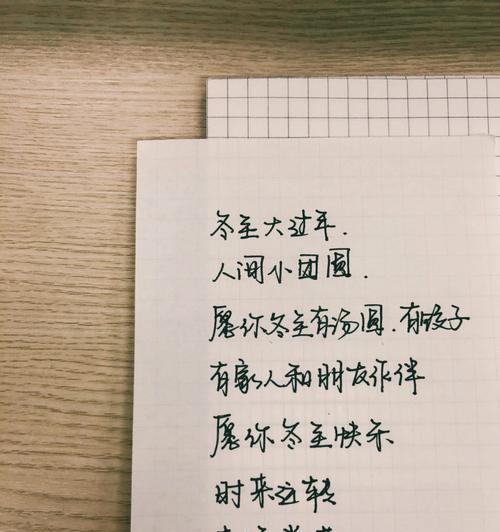 冬至大过年.
人间小团圆.
愿你冬至有汤圆.有饺子
有家人和朋友作伴
愿你冬至快乐
时来运转